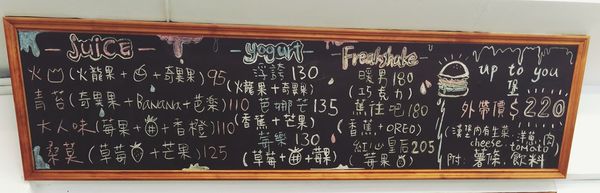 JUICE
火 (火龍果 + + 奇異果) 95
青苔 (奇異果 + Banana + 芭樂) 110
大人味 (莓果 + + 香橙) 110
桑莫 (草莓 + 芒果) 125
yogurt
浮誇 130
(火龍果 + 奇異果)
芭娜芒 135
(香蕉 + 芒果)
莓樂 130
(草莓 + + 莓果)
Freakshake
暖男 180
(巧克力)
蕉往吧 180
(香蕉 + OREO)
紅心皇后 205
(莓果)
up to you
堡
外帶價 $220
(漢堡內有生菜、洋蔥、肉
cheese、tomato)
附: 薯條、飲料